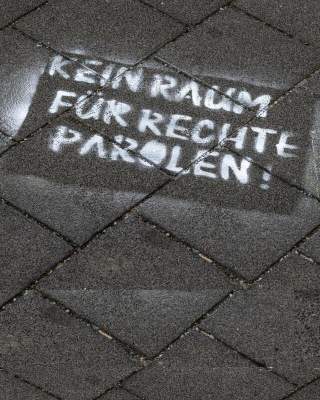 KEIN RAUM
FÜR RECHTE
PAROLEN!